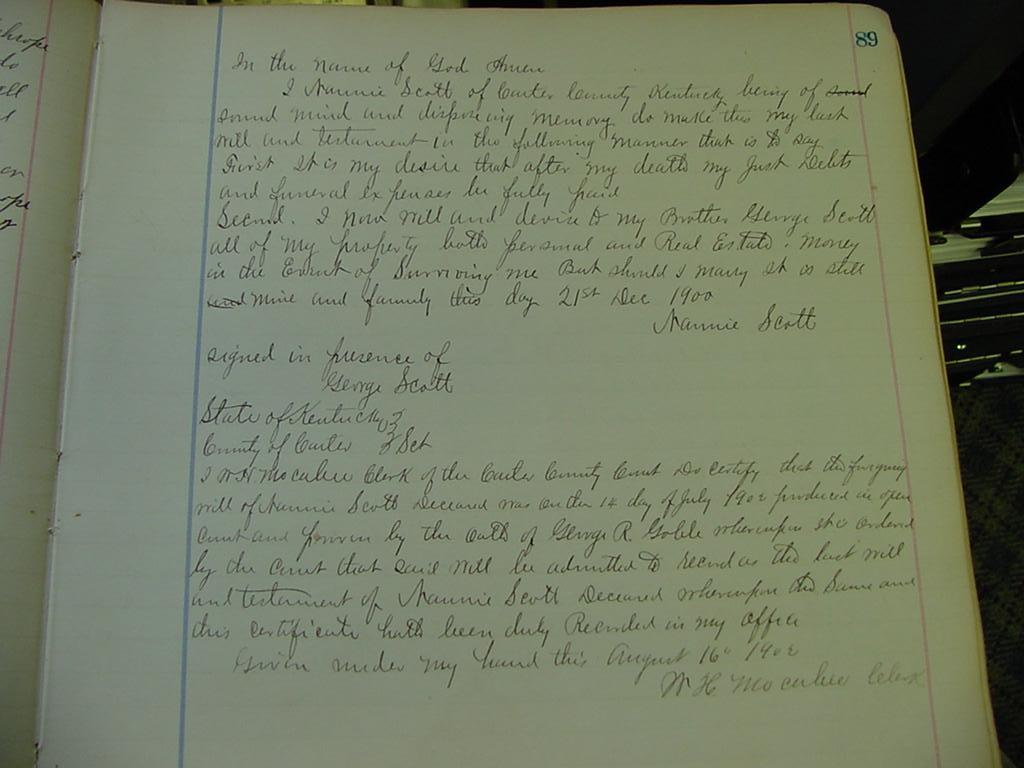 89
In the name of God Amen
I Nannie Scott of Carter County Kentucky being of sound
sound mind and disposeing memory do make this my last
will and testament in the following manner that is to say
First It is my desire that after my death my Just Debts
and funeral expenses be fully paid
Second. I now will and devise to my Brother George Scott
all of my property both personal and Real Estate. Money
in the Event of Surviving me But should I marry it is still
and mine and family this day 21st Dec 1900
Nannie Scott
signed in presence of
George Scott
State of Kentucky }
County of Carter } Sct
I W H Mocabee Clerk of the Carter County Court Do certify that the foregoing
will of Nannie Scott Deceased was on the 14 day of July 1902 produced in open
court and proven by the oath of George R Goble whereupon it is ordered
by the court that said will be admitted to record as the last will
and testament of Nannie Scott Deceased whereupon the Same and
this certificate hath been duly Recorded in my office
Given under my hand this August 16" 1902
W H Mocabee Clerk